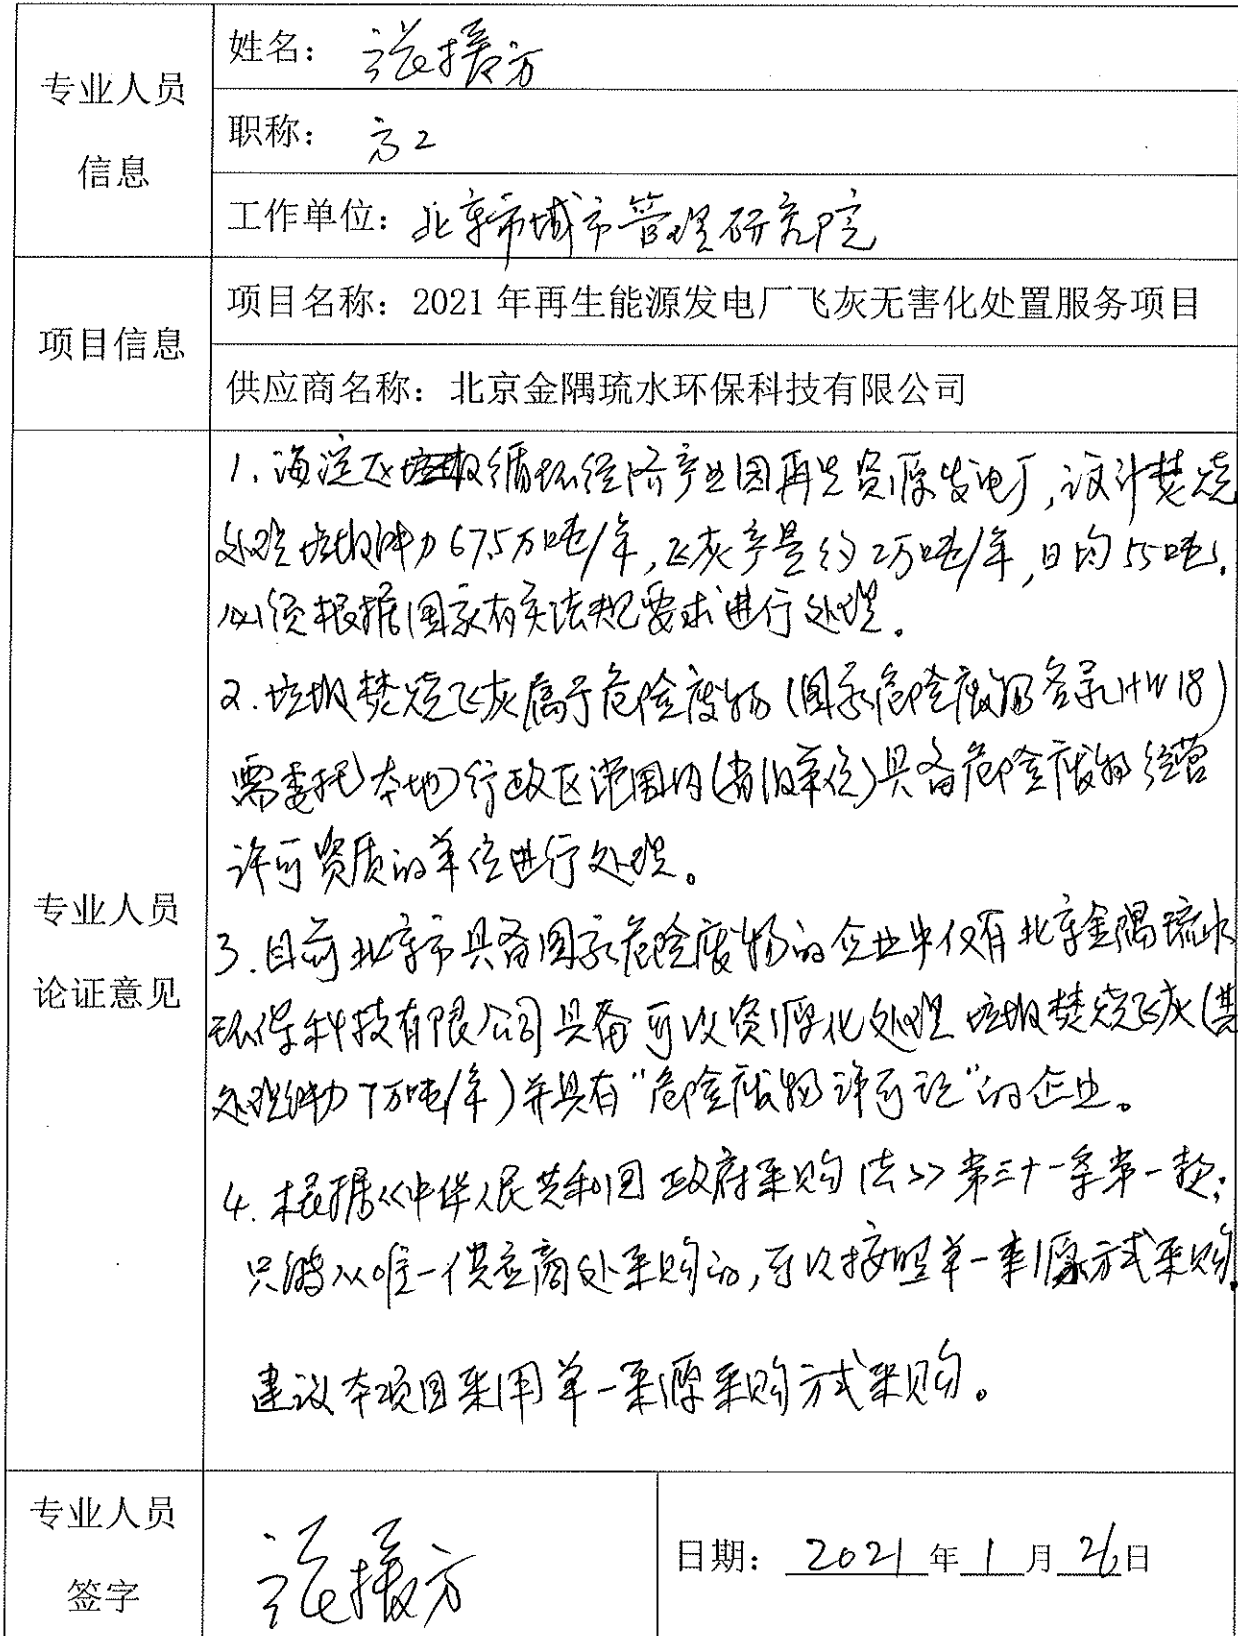 专业人员
信息
姓名：
职称：高工
工作单位：北京市城市管理研究院
项目信息
项目名称：2021年再生能源发电厂飞灰无害化处置服务项目
供应商名称：北京金隅琉水环保科技有限公司
专业人员
论证意见
1.海淀区垃圾循环经济产业园再生资源发电厂,设计焚烧
处理垃圾能力67.5万吨/年,飞灰产量约2万吨/年,日均55吨.
必须根据国家有关法规要求进行处理。
2.垃圾焚烧飞灰属于危险废物(国家危险废物名录HW18)
需委托本地行政区范围内(省组单位)具备危险废物经营
许可资质的单位进行处理。
3.目前北京市具备国家危险废物的企业中仅有北京金隅琉水
环保科技有限公司具备可以资源化处理垃圾焚烧飞灰(其
处理能力7万吨/年)并具有"危险废物许可证"的企业。
4.根据《中华人民共和国政府采购法》第三十一条第一款:
只能从唯一供应商处采购的,可以按照单一来源方式采购.
建议本项目采用单一来源采购方式采购。
专业人员
签字
日期：2021年1月26日